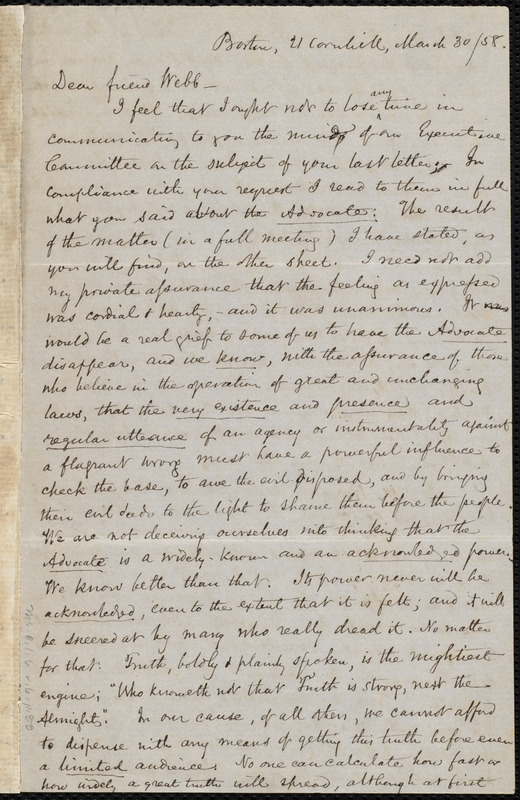 Boston, 21 Cornhill, March 30/58.
Dear friend Webb-
I feel that I ought not to lose any time in
communicating to you the mind of our Executive
Committee on the subject of your last letter. In
compliance with your request I read to them in full
what you said about the Advocate: The result
of the matter (in a full meeting) I have stated, as
you will find, on the other sheet. I need not add
my private assurance that the feeling as expressed
was cordial & hearty,- and it was unanimous. It
would be a real grief to some of us to have the Advocate
disappear, and we know, with the assurance of those
who believe in the operation of great and unchanging
laws, that the very existence and presence and
regular utterance of an agency or instrumentality against
a flagrant wrong must have a powerful influence to
check the base, to awe the evil disposed, and by bringing
their evil deeds to the light to shame them before the people.
We are not deceiving ourselves into thinking that the
Advocate is a widely-known and an acknowledged power.
We know better than that. Its power never will be
acknowledged, even to the extent that it is felt; and it will
be sneered at by many who really dread it. No matter
for that. Truth, boldly & plainly spoken, is the mightiest
engine; "Who knoweth not that Truth is strong, next the
Almighty". In our cause, of all others, we cannot afford
to dispense with any means of getting this truth before even
a limited audience. No one can calculate how fast or
how widely a great truth will spread, although at first